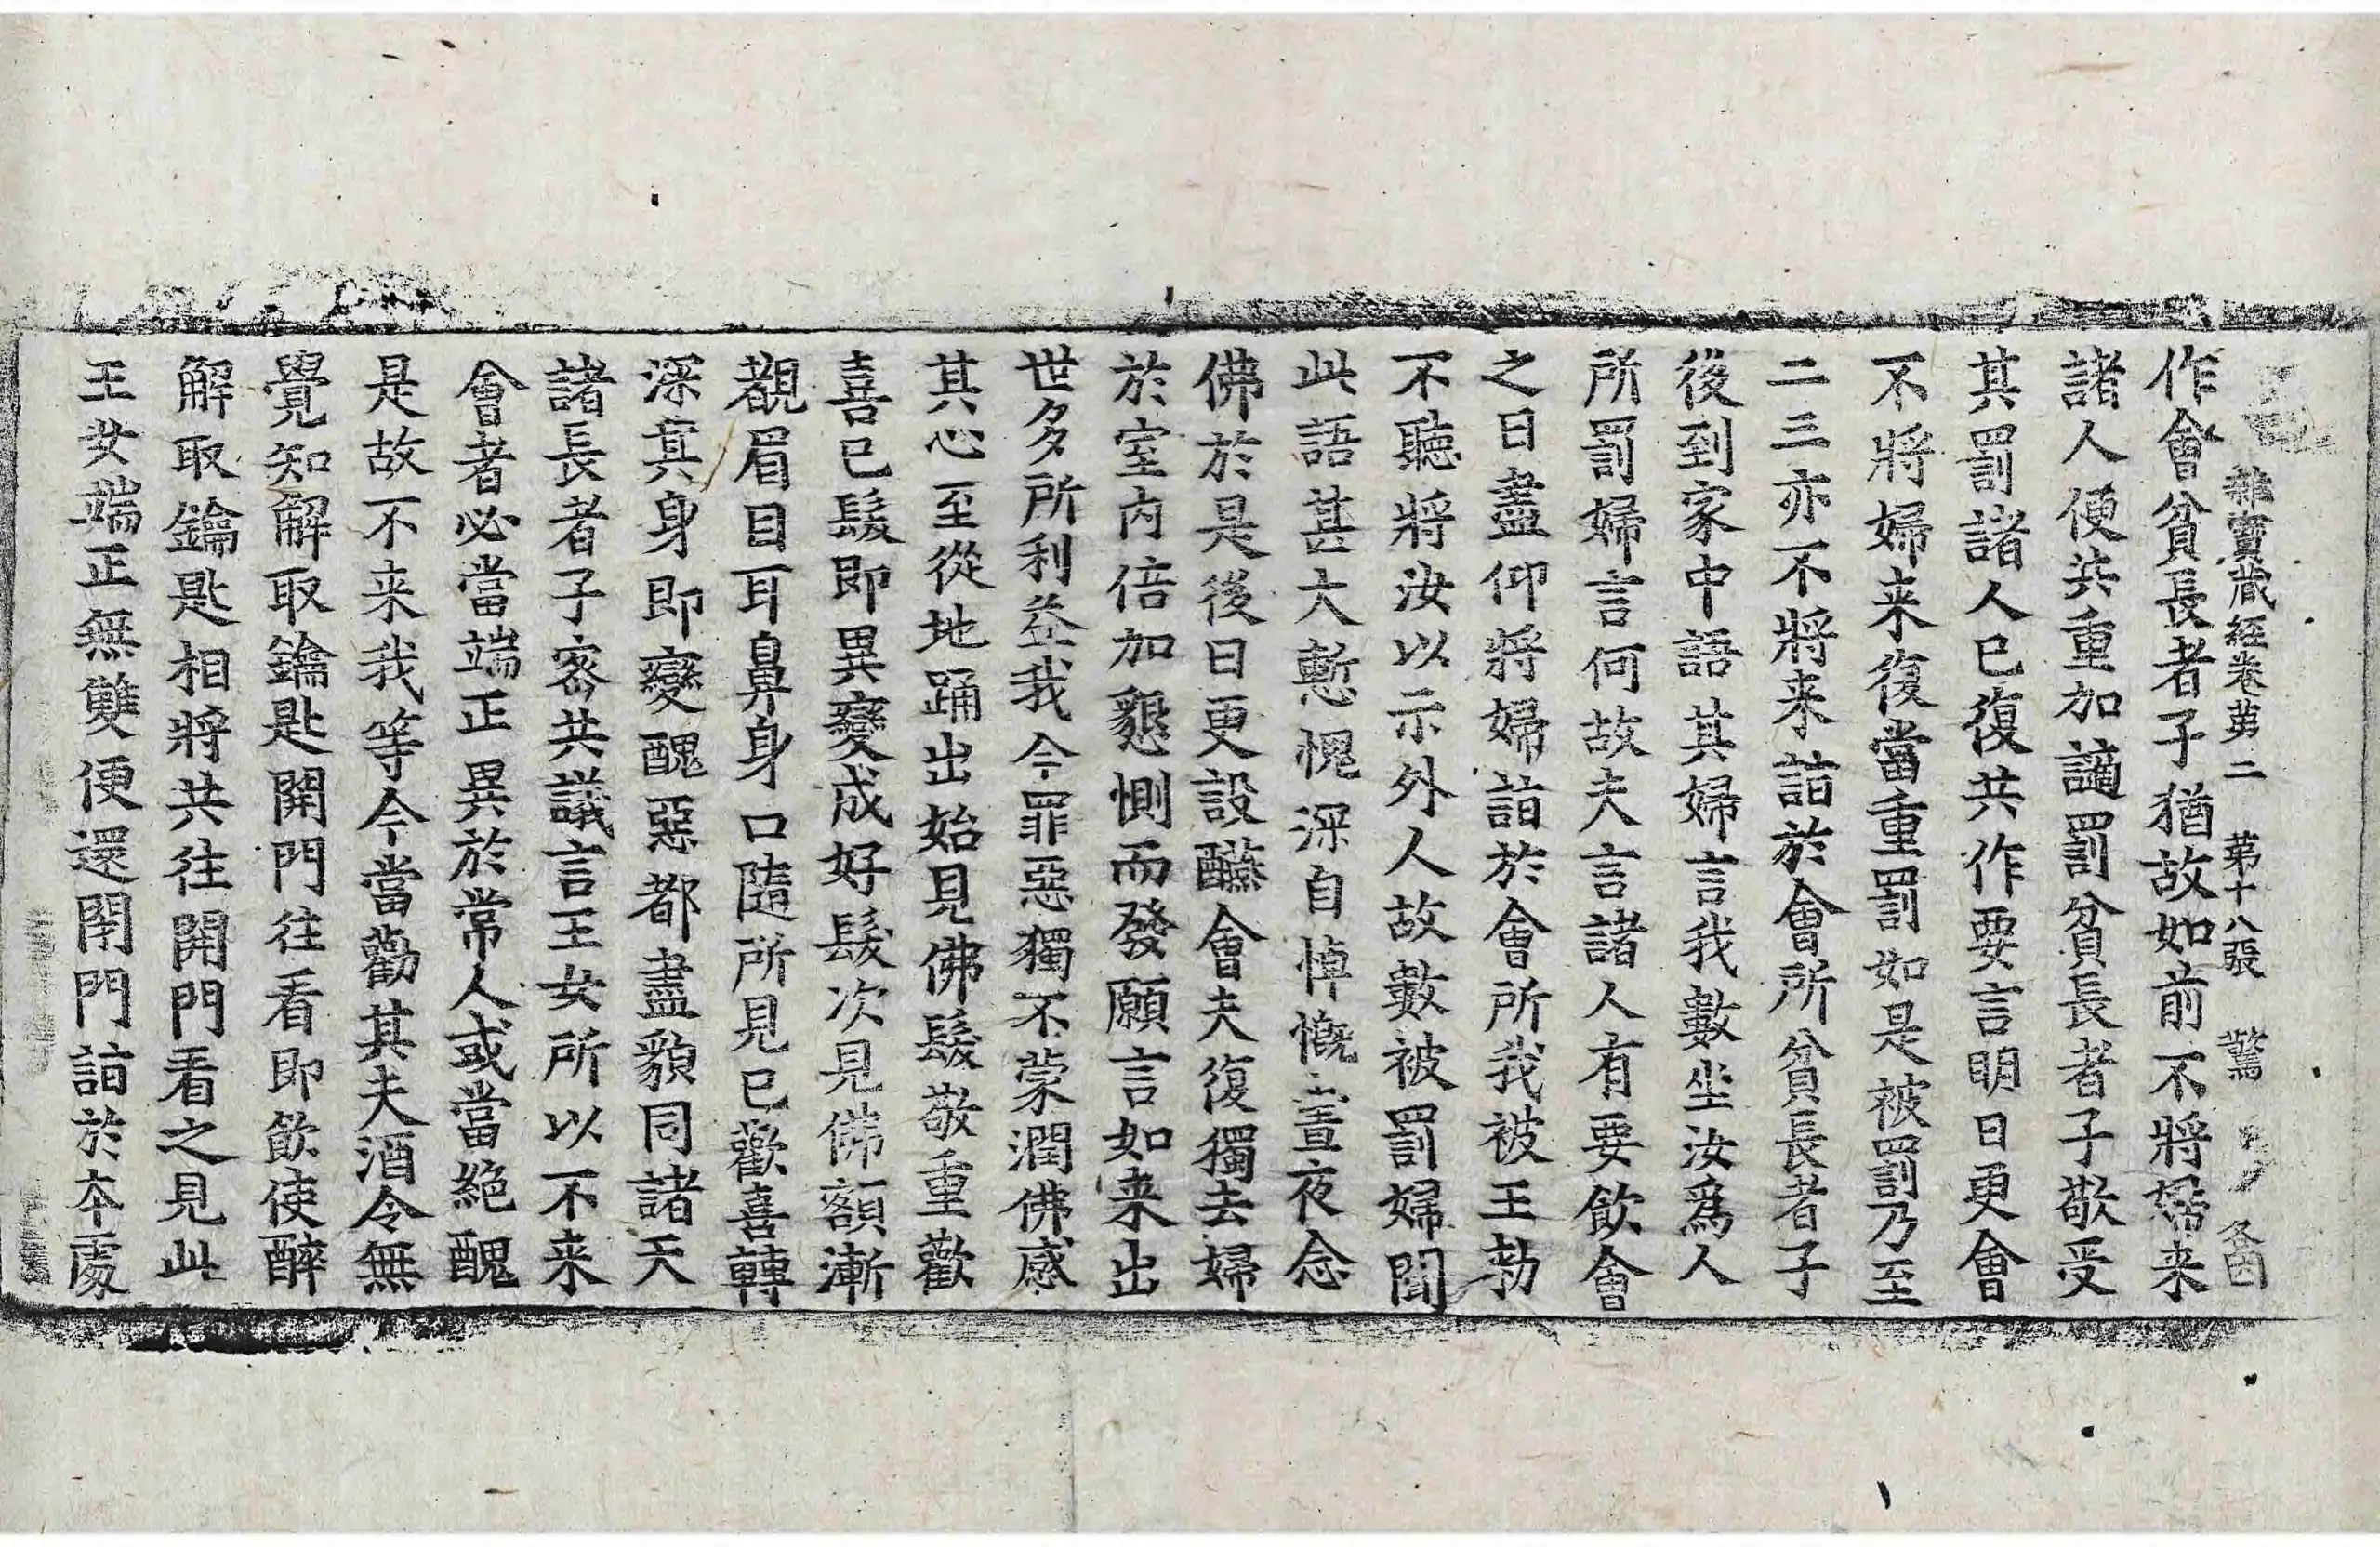 雜寶藏經卷苐二　苐十八張　驚
作會貧長者子猶故如前不將婦来
諸人便共重加讁罰貧長者子敬受
其罰諸人已復共作要言明日更會
不將婦来復當重罰如是被罰乃至
二三亦不將来詣於會所貧長者子
後到家中語其婦言我數坐汝爲人
所罰婦言何故夫言諸人有要飮會
之日盡仰將婦詣於會所我被王勑
不聽將汝以示外人故數被罰婦聞
此語甚大慙愧深自悼慨晝夜念
佛於是後日更設醼會夫復獨去婦
於室内倍加懇惻而發願言如来出
世多所利益我今罪惡獨不蒙潤佛感
其心至從地踊出始見佛髮敬重歡
喜已髮即異變成好髮次見佛額漸
覩眉目耳鼻身口隨所見已歡喜轉
深其身即變醜惡都盡貌同諸天
諸長者子密共議言王女所以不来
會者必當端正異於常人或當絶醜
是故不来我等今當勸其夫酒令無
覺知解取鑰匙開門往看即飮使醉
解取鑰匙相將共往開門看之見此
王女端正無雙便還閇門詣於本處